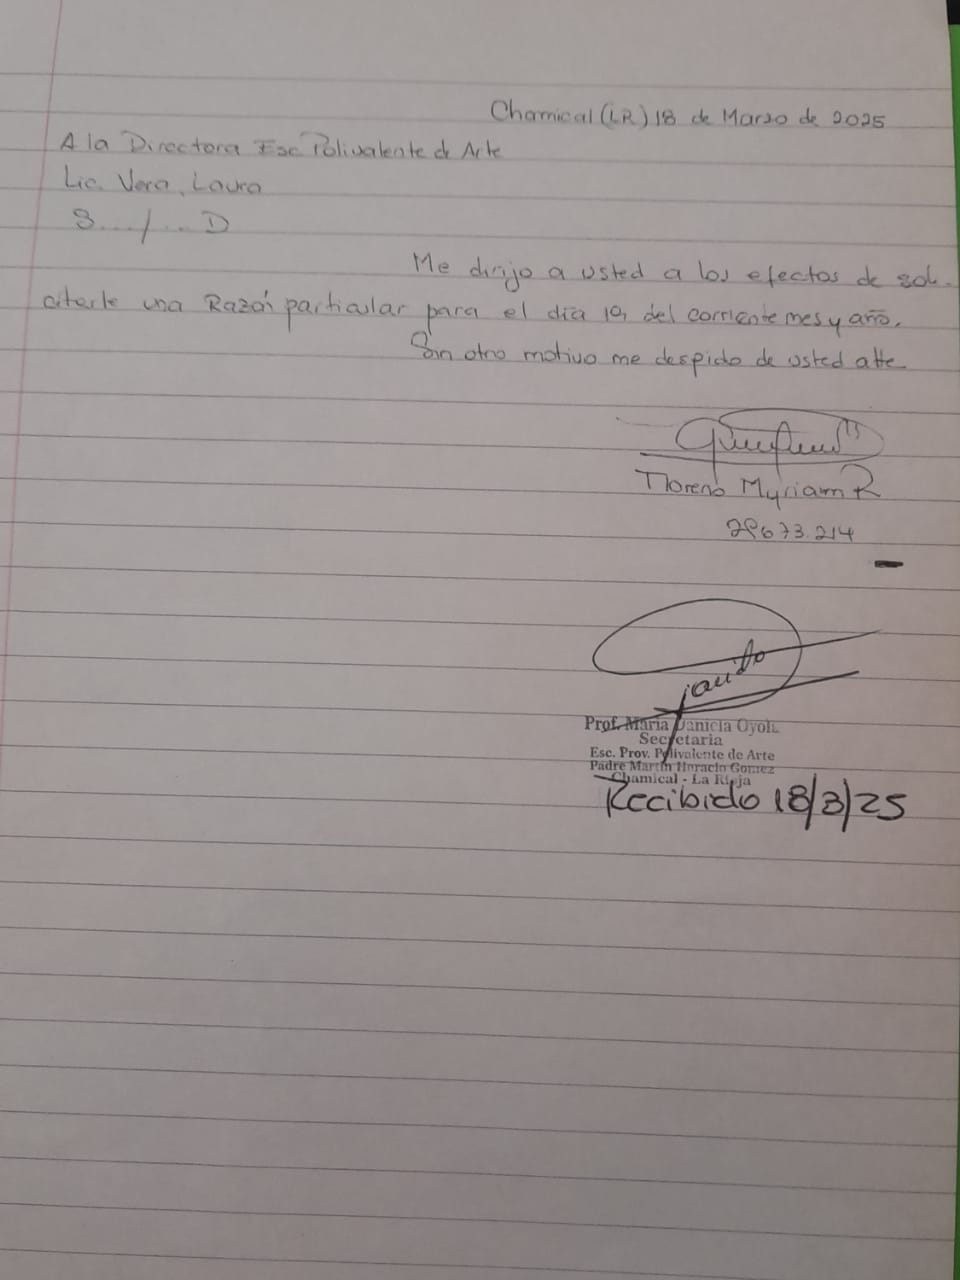 Chamical (LR) 18 de Marzo de 2025
A la Directora Esc Polivalente de Arte
Lic. Vera, Laura
S..../....D
Me dirijo a usted a los efectos de soli-
citarle una Razón particular para el día 19, del corriente mes y año.
Sin otro motivo me despido de usted atte
Moreno Myriam R
29673.214
Prof. María Daniela Oyola
Secretaria
Esc. Prov. Polivalente de Arte
Padre Martín Horacio Gomez
Chamical - La Rioja
Recibido 18/3/25